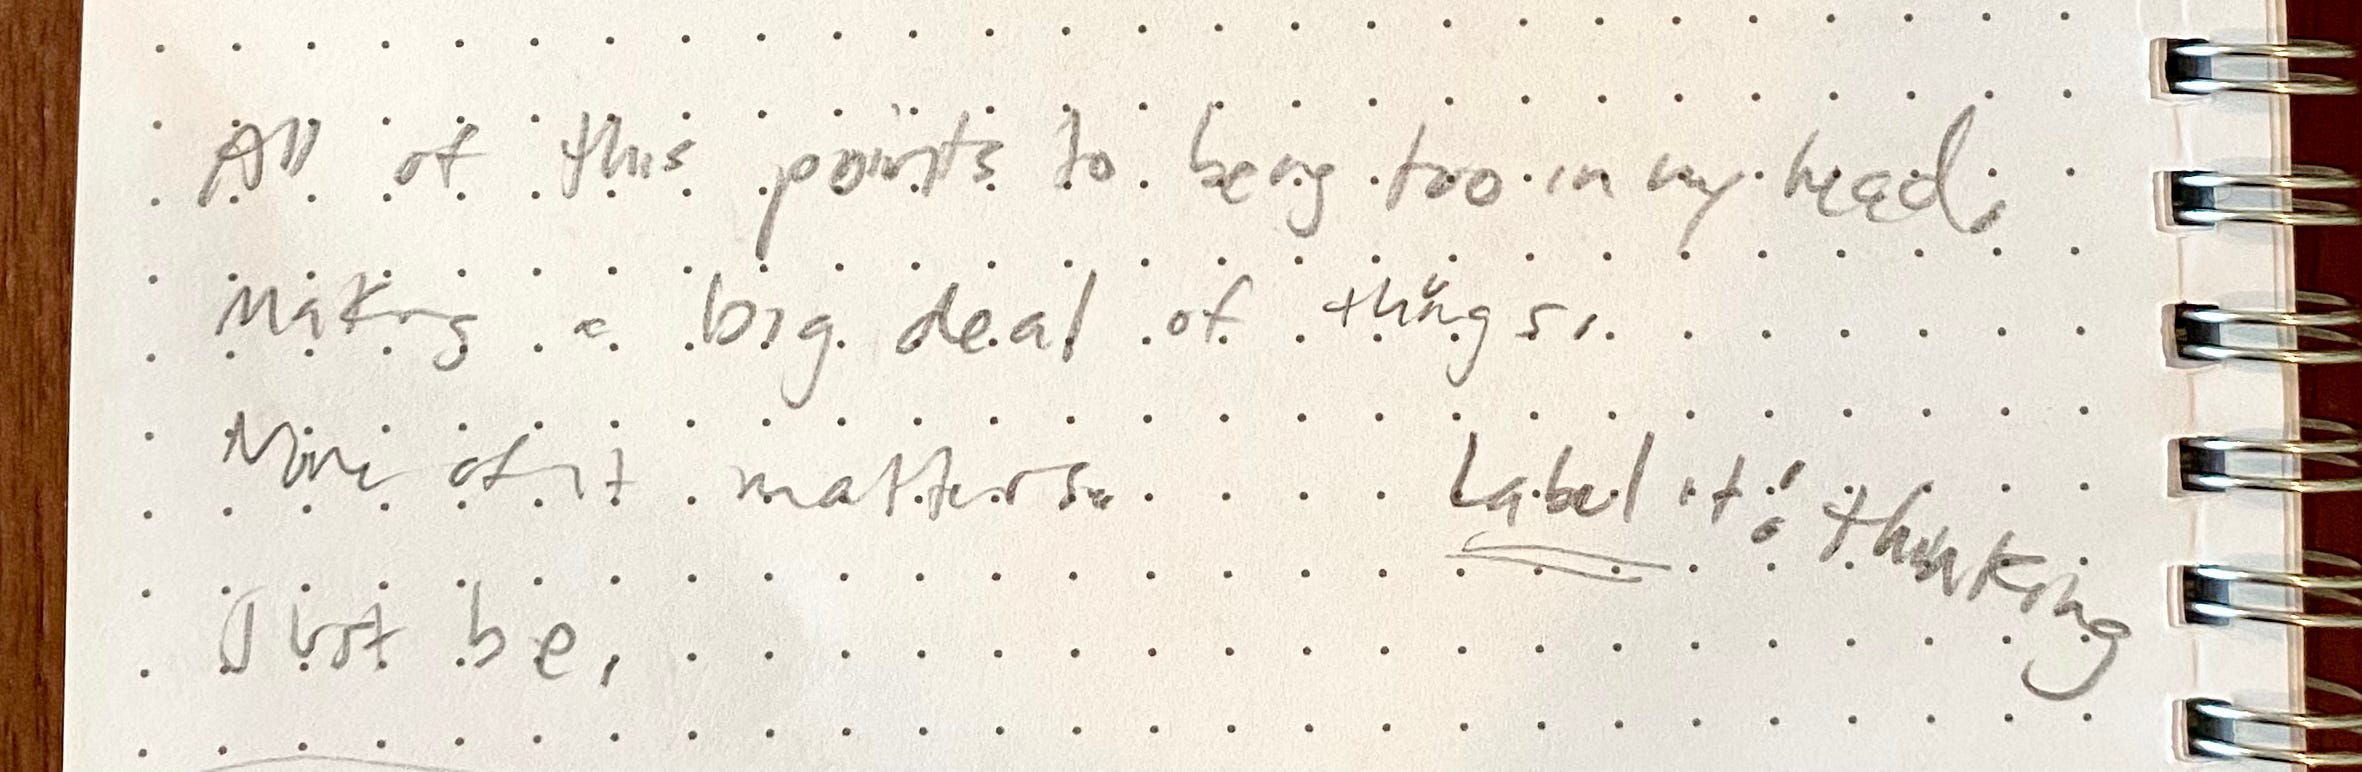 All of this points to being too in my head,
Making a big deal of things.
None of it matters.
Label it: thinking
Just be.